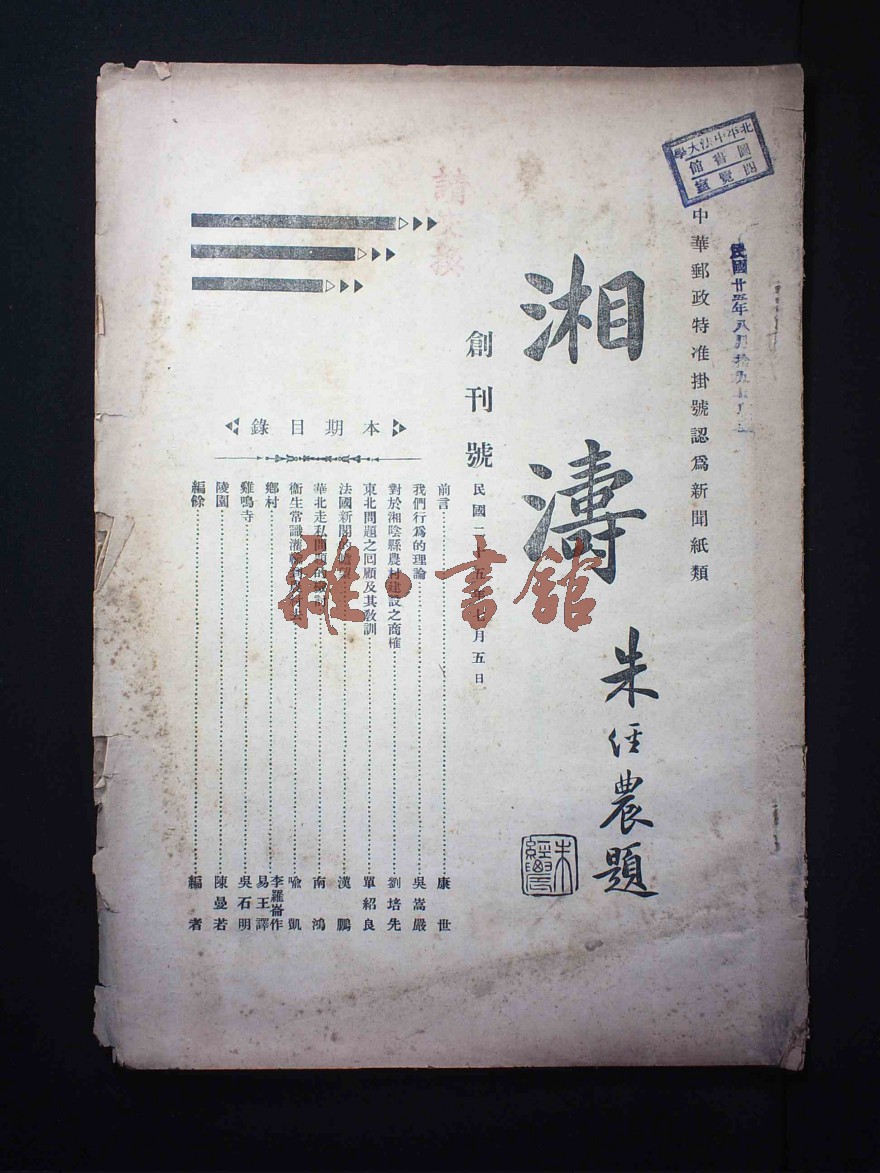 北平中法大學
圖書館
閱覽室
民國廿五年八月拾五
中華郵政特准掛號認爲新聞紙類
湘濤
朱經農題
創刊號
民國二十五年七月五日
請交換
本期目錄
前言 康世
我們行爲的理論 吳嵩嚴
對於湘陰縣農村建設之商榷 劉培先
東北問題之回顧及其教訓 單紹良
法國新聞 漢鵬
華北走私問題的檢討 南鴻
衛生常識灌輸到農村去 喩凱
鄉村 李羅崙作 易王譯
雞鳴寺 吳石明
陵園 陳曼若
編餘 編者
雜·書館